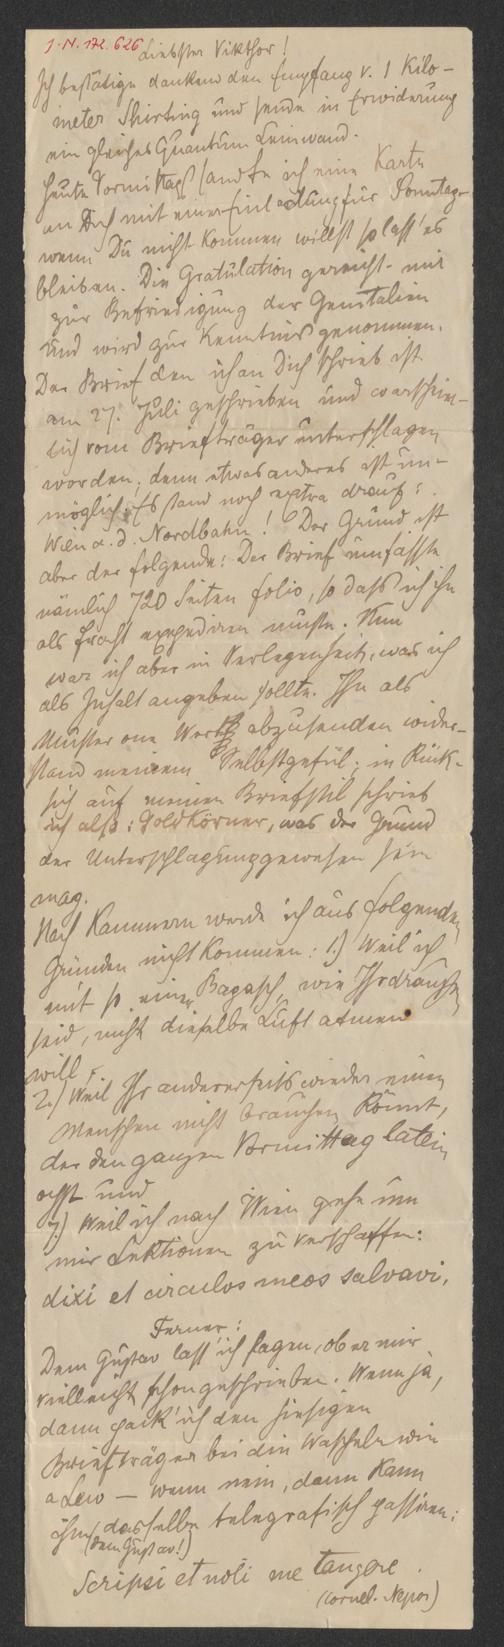 J. N. 172.626
Liebster Vikthor!
Ich bestätige dankend den Empfang v. 1 Kilo-
meter Shirting und sende in Erwiderung
ein gleiches Quantum Leinwand.
Heute Vormittags sandte ich eine Karte
an Dich mit einer Einladung für Sonntag-
wenn Du nicht kommen willst so lass' es
bleiben. Die Gratulation gereicht mir
zur Befriedigung der Genitalien
und wird zur Kenntnis genommen.
Der Brief den ich an Dich schrieb ist
am 27. Juli geschrieben und warschein-
lich vom Briefträger unterschlagen
worden; denn etwas anderes ist un-
möglich. Es stand noch extra drauf:
Wien a. d. Nordbahn! Der Grund ist
aber der folgende: Der Brief umfasste
nämlich 720 Seiten folio, so dass ich ihn
als Fracht expedieren musste. Nun
war ich aber in Verlegenheit, was ich
als Inhalt angeben sollte. Ihn als
Muster one Werth abzusenden wider-
stand meinem Selbstgefül; in Rück-
sicht auf meinen Briefstil schrieb
ich also: Goldkörner, was der Grund
der Unterschlagung gewesen sein
mag.
Nach Kammern werde ich aus folgenden
Gründen nicht kommen: 1.) Weil ich
mit so einer Bagasch, wie Ihr draussen
seid, nicht dieselbe Luft atmen
will.
2.) Weil Ihr andererseits wieder einen
Menschen nicht brauchen könnt,
der den ganzen Vormittag latein
ochst und
3.) Weil ich nach Wien gehe um
mir Lektionen zu verschaffen:
dixi et circulos meos salvavi.
Ferner:
Dem Gustav lass' ich sagen, ob er mir
vielleicht schon geschrieben. Wenn ja,
dann pack' ich den hiesigen
Briefträger bei die Wascheln wie
a Lew — wenn nein, dann kann
ihm dasselbe telegrafisch passiren:
(dem Gustav!)
Scripsi et noli me tangere.
(Cornel. Nepos)